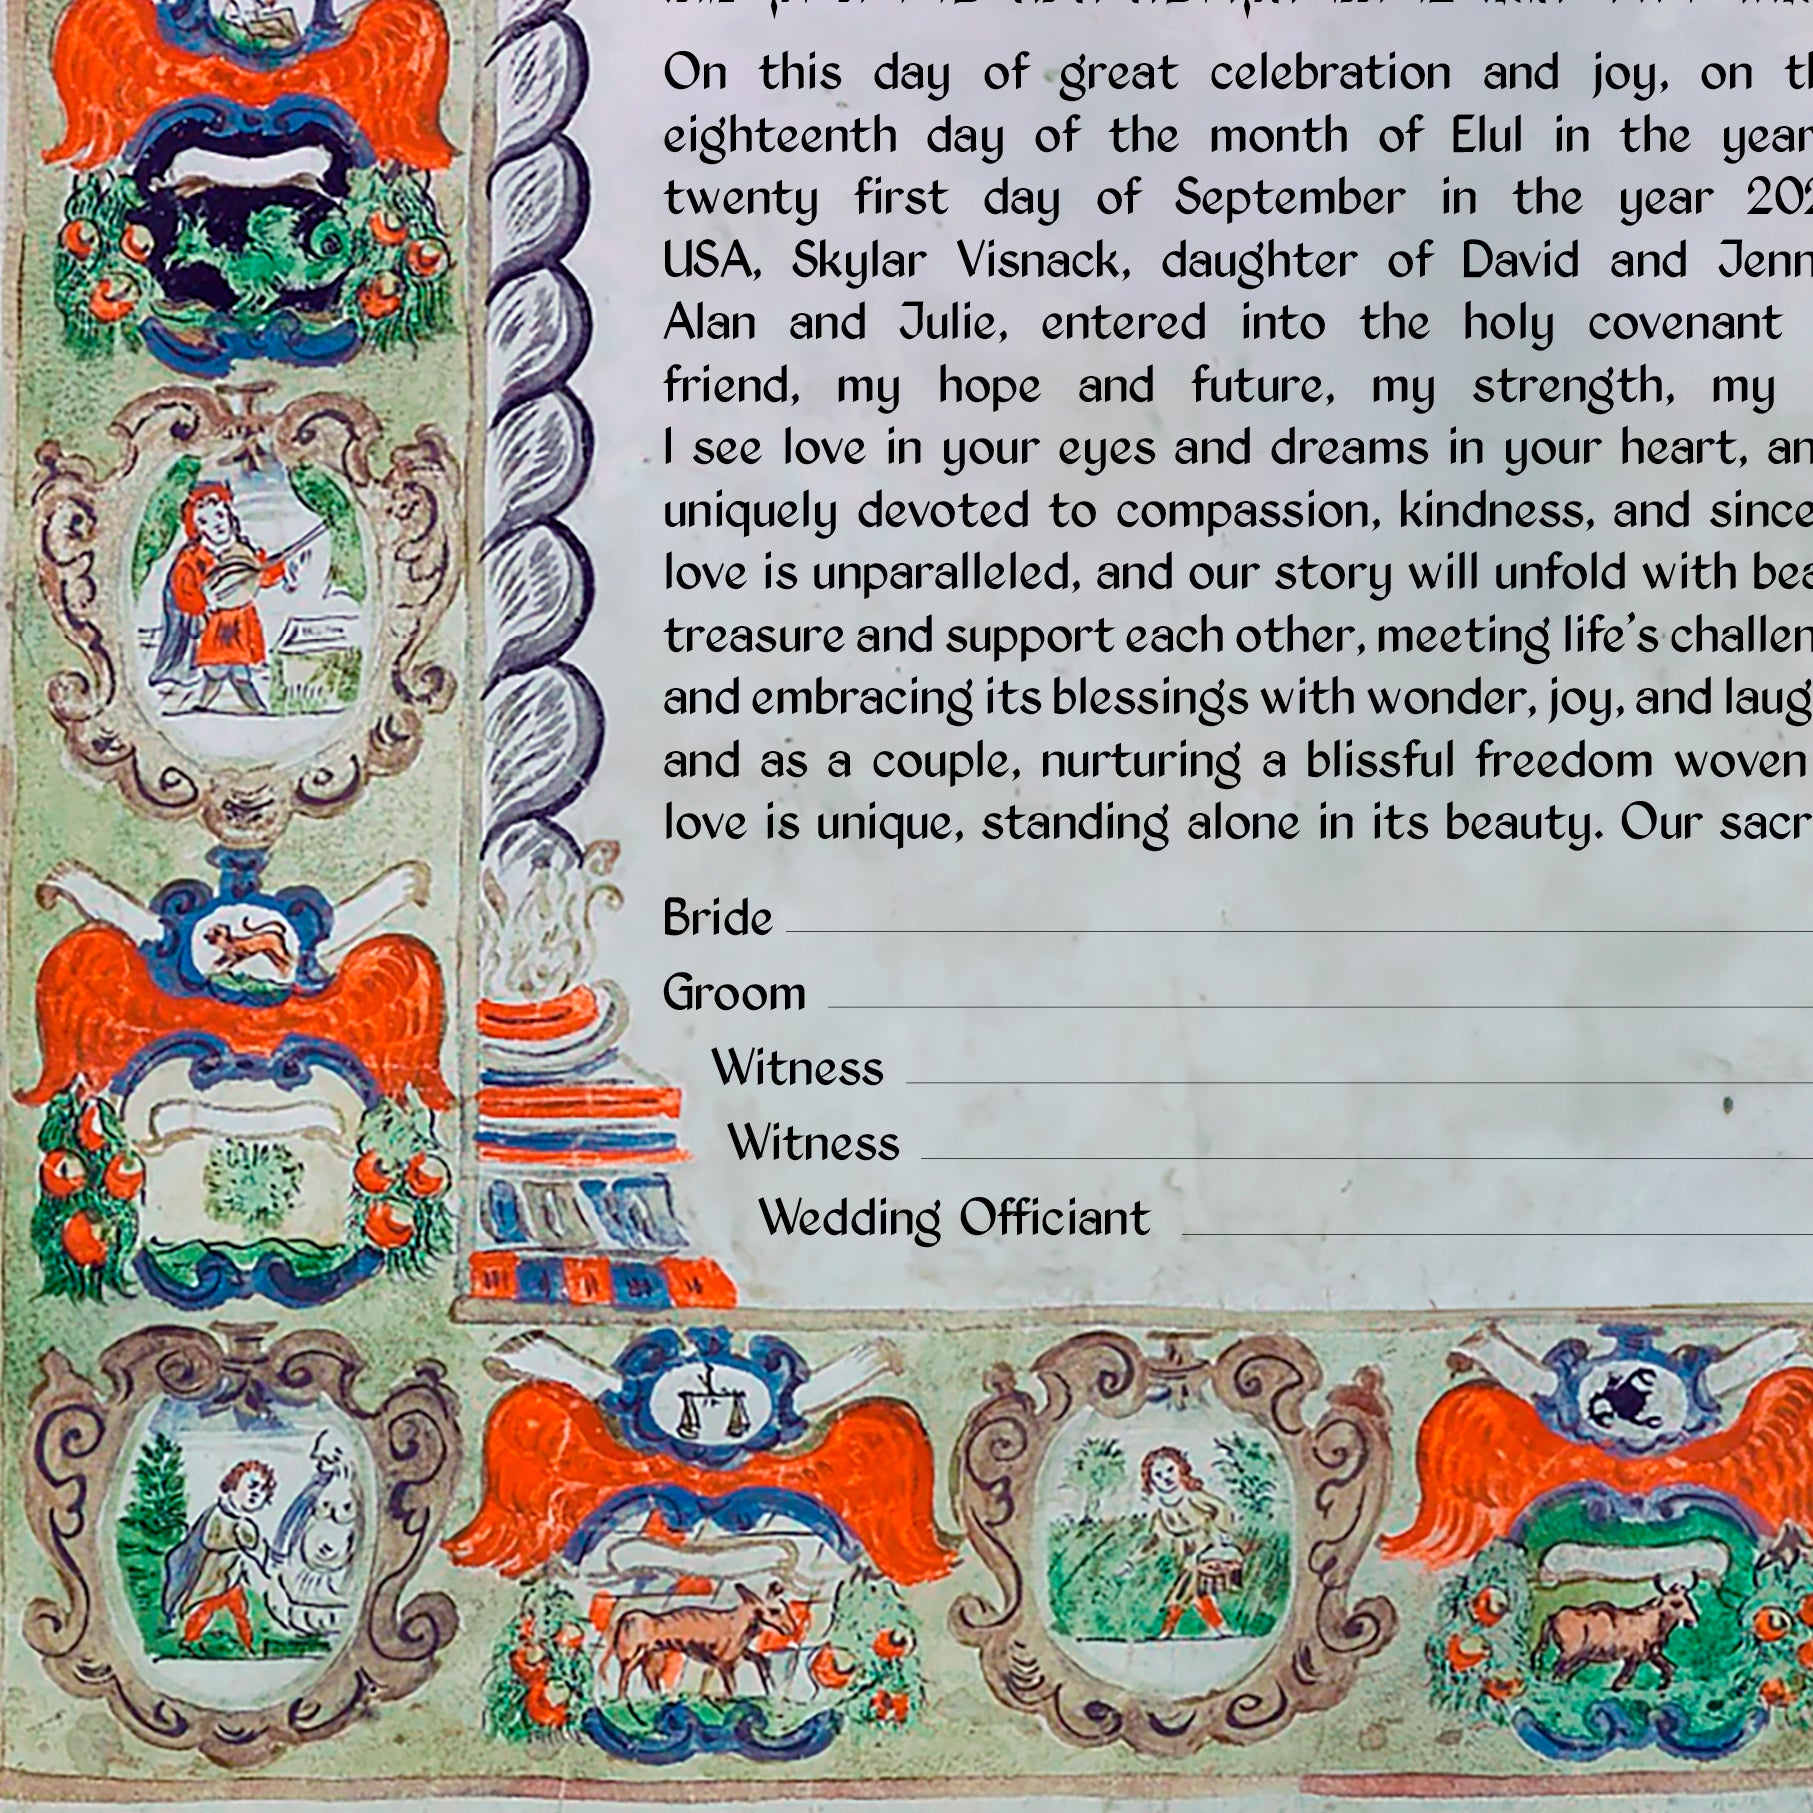 On this day of great celebration and joy, on
eighteenth day of the month of Elul in the year
twenty first day of September in the year
USA, Skylar Visnack, daughter of David and
Alan and Julie, entered into the holy covenant
friend, my hope and future, my strength, my
I see love in your eyes and dreams in your heart,
uniquely devoted to compassion, kindness, and
love is unparalleled, and our story will unfold with
treasure and support each other, meeting life’s
and embracing its blessings with wonder, joy, and
and as a couple, nurturing a blissful freedom woven
love is unique, standing alone in its beauty. Our
Bride
Groom
Witness
Witness
Wedding Officiant